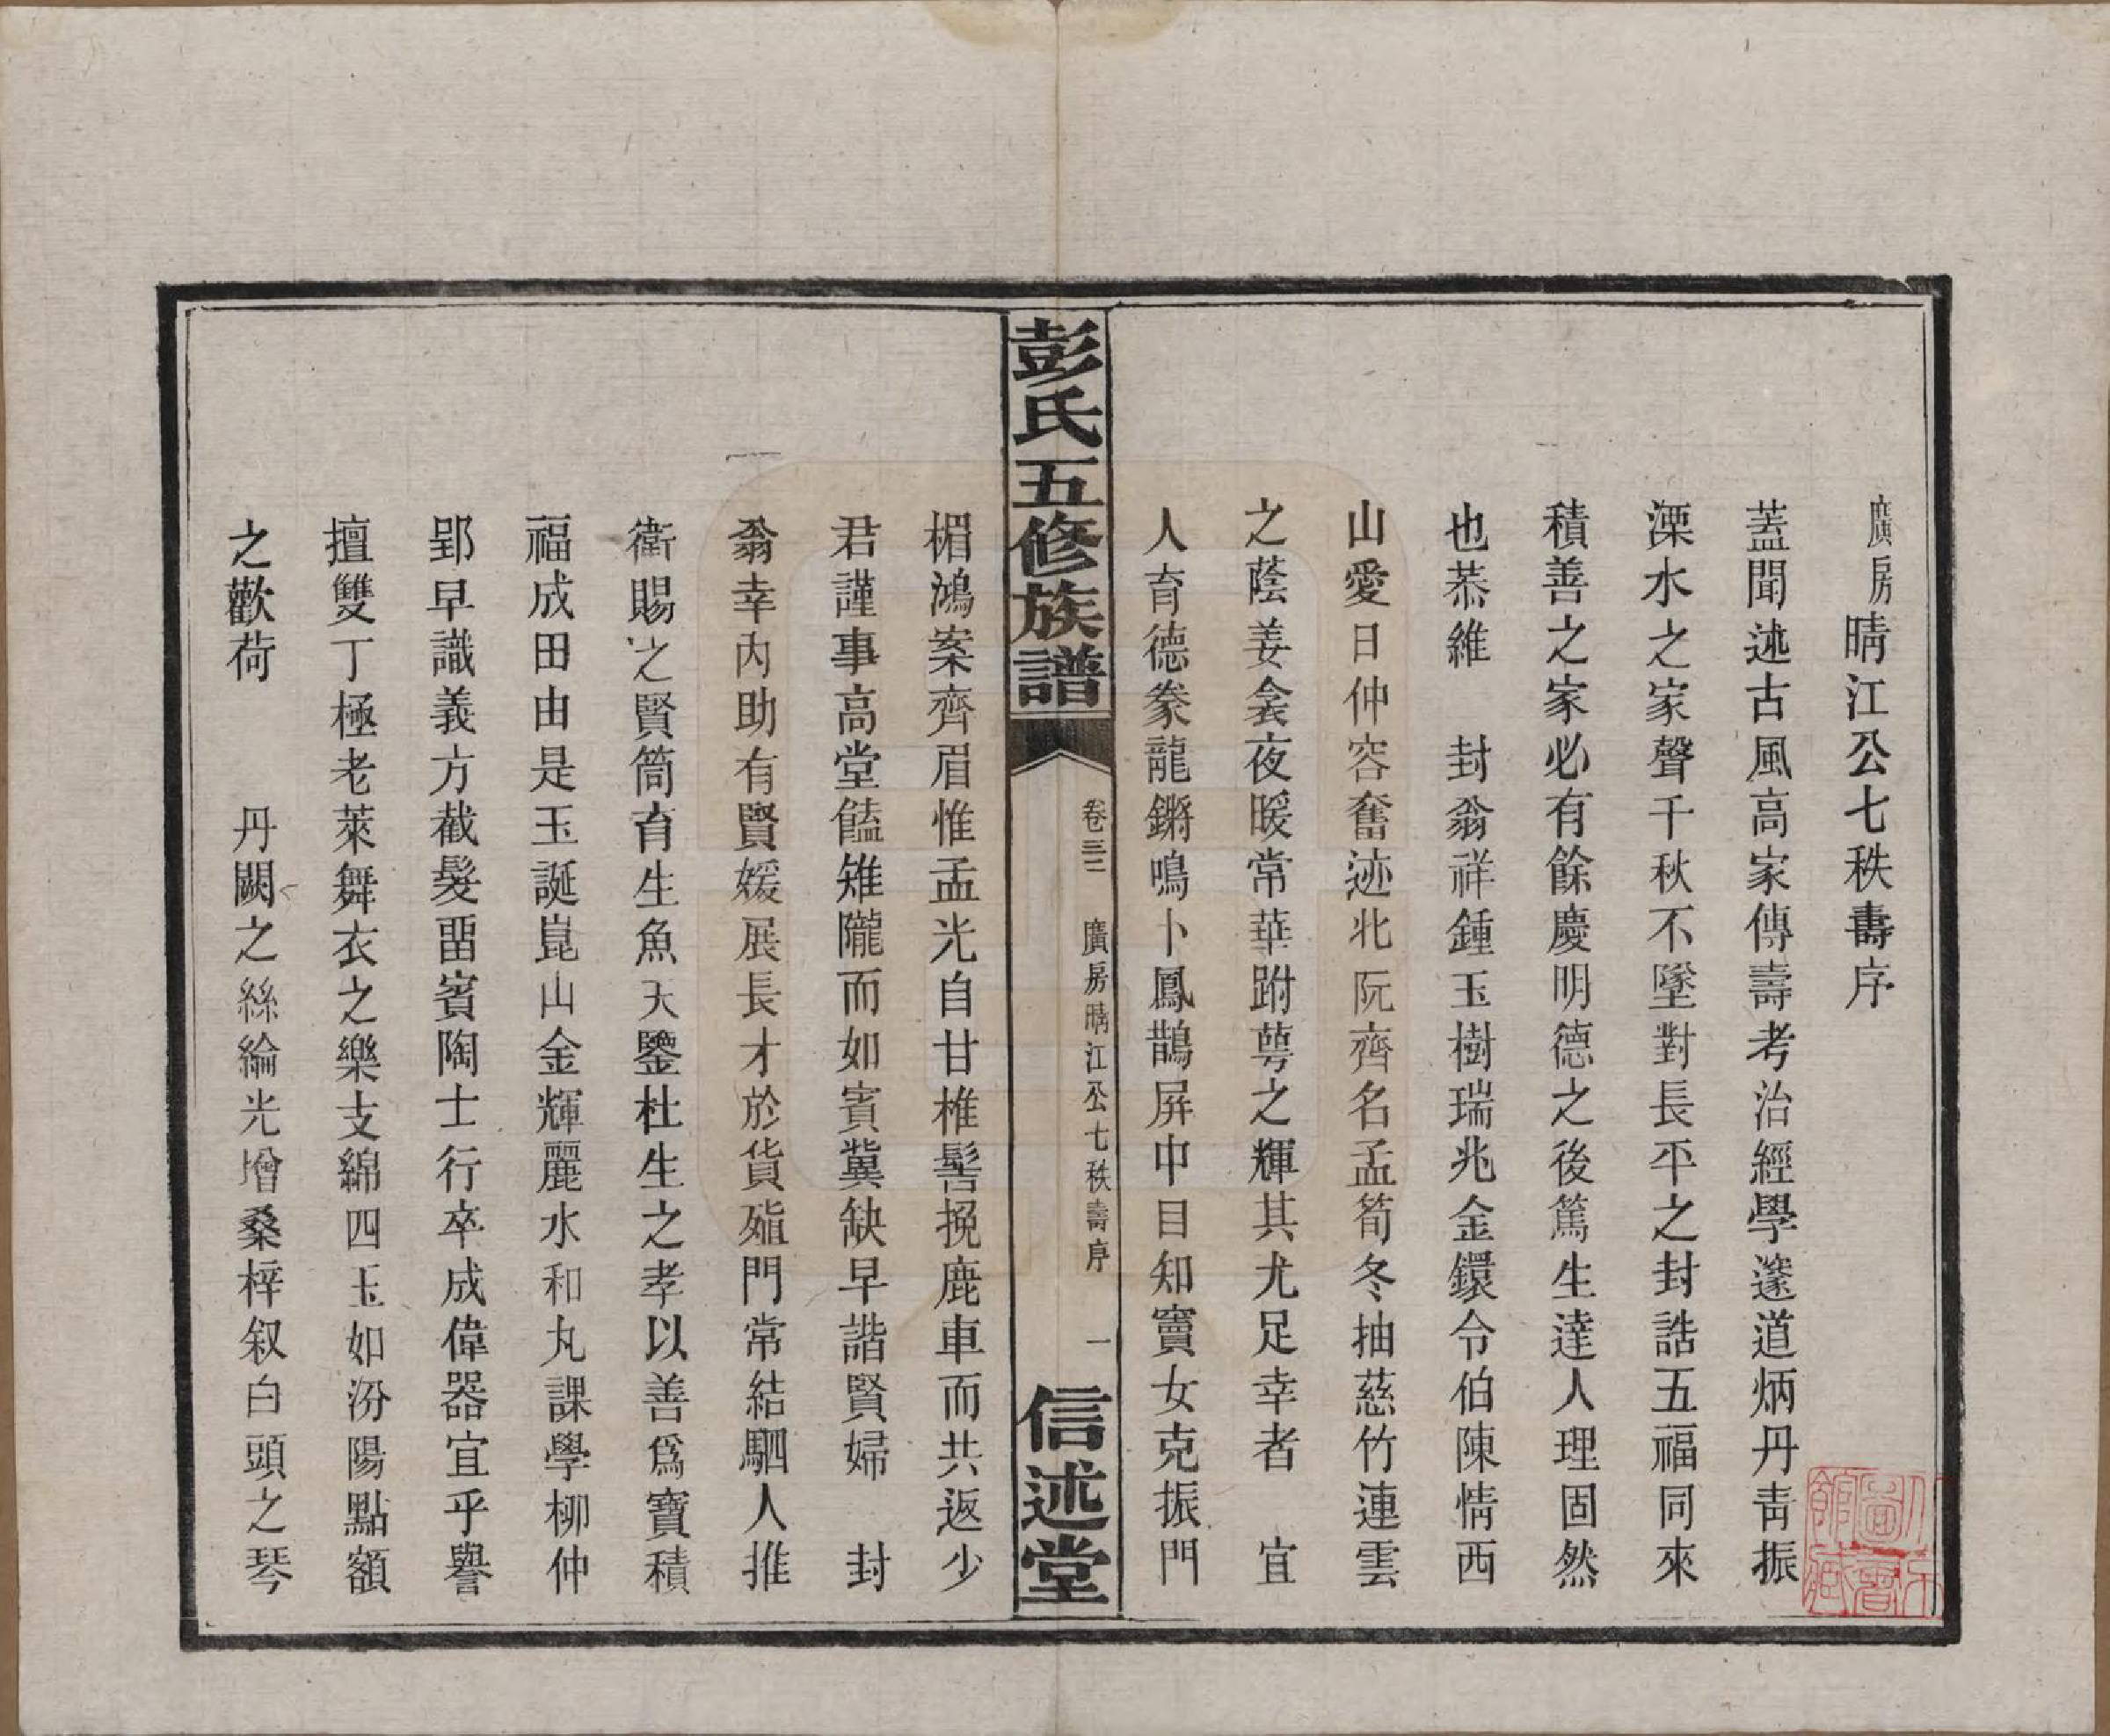 廣房晴江公七秩壽序
蓋聞述古風高家傳壽考治經學邃道炳丹靑振
溧水之家聲千秋不墜對長平之封誥五福同來
積善之家必有餘慶明德之後篤生達人理固然
也恭維　封翁祥鍾玉樹瑞兆金鐶令伯陳情西
山愛日仲容奮迹北阮齊名孟筍冬抽慈竹連雲
之蔭姜衾夜暖常華跗萼之輝其尤足幸者　宜
人育德豢龍鏘鳴卜鳳鵲屏中目知竇女克振門
彭氏五修族譜
卷三二　廣房晴江公七秩壽序　一
信述堂
楣鴻案齊眉惟孟光自甘椎髻挽鹿車而共返少
君謹事高堂饁雉隴而如賓冀缺早諧賢婦　封
翁幸內助有賢媛展長才於貨殖門常結駟人推
衞賜之賢筒育生魚天鑒杜生之孝以善爲寶積
福成田由是玉誕崑山金輝麗水和丸課學柳仲
郢早識義方截髮留賓陶士行卒成偉器宜乎譽
擅雙丁極老萊舞衣之樂支綿四玉如汾陽點額
之歡荷　丹闕之絲綸光增桑梓叙白頭之琴